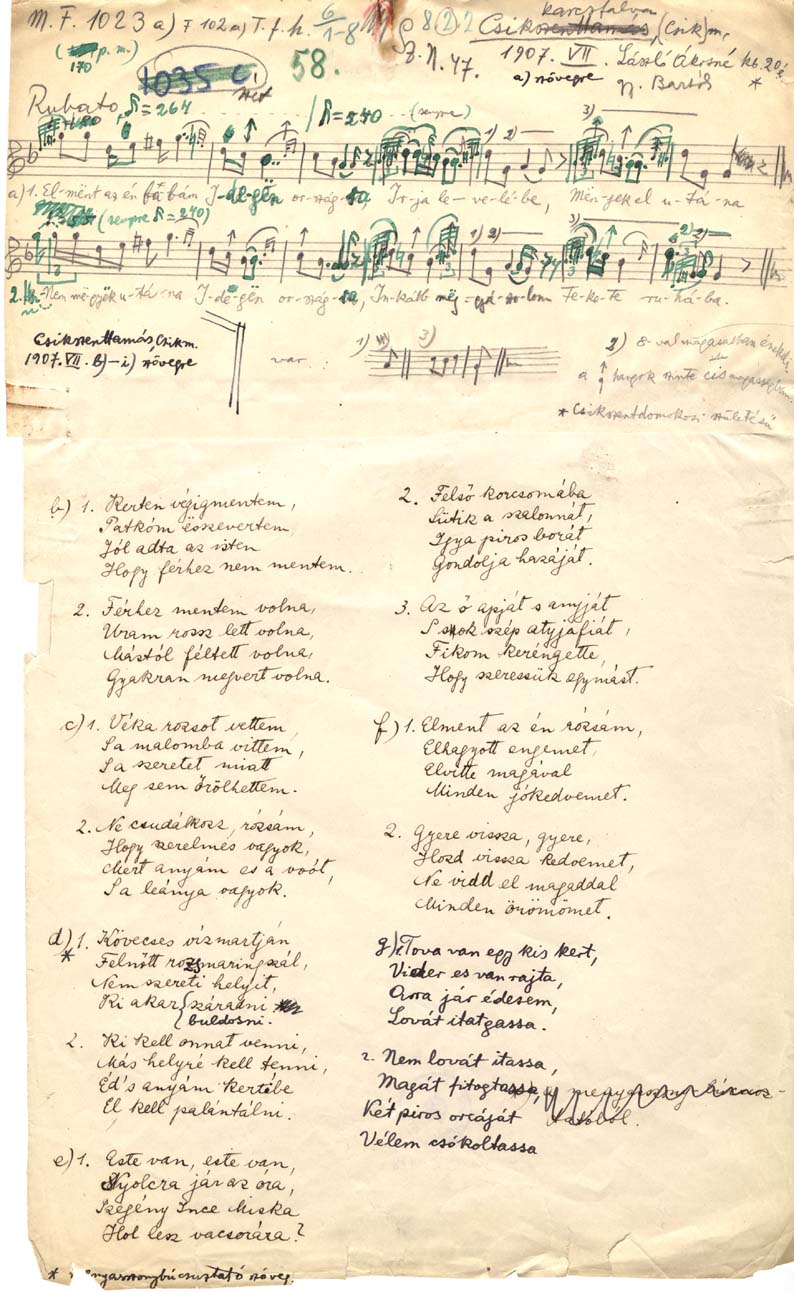 M. F. 1023 a) F 102 a) T. f. h. 6/1-8
karczfalva
8 (2) 2 Csikszenttamás, (Csik)m,
Z. N. 47.
1907. VII. László Ákosné kb. 20 é.
( p. m.)
170
1035 c.
58.
a) szövegre gy. Bartók *
Rubato, = 264
= 240 (sempre)
3)
1) 2)
a) 1. El-mënt az én bá-bám I-dë-gën or-szág-ba Ir-ja le-ve-lé-be, Mën-jek el u-tá-na
(sempre = 240)
1) 2)
3)
2)
2. Nem mëgyëk u-tá-na I-dë-gën or-szág-ba, In-kább mëg-gyá-szo-lom Fe-ke-te ru-há-ba.
Csikszenttamás, Csikm.
1907. VII. b)-i) szövegre
var.
1)
3)
2) 8-val magasabban énekel
a hangok szinte cis magasságban
* Csikszentdomokosi születésü
b) 1. Kerten végigmentem,
Patkóm ësszevertem,
Jól adta az isten
Hogy férhez nem mentem.
2. Férhez mentem volna,
Uram rossz lett volna,
Mástól féltett volna,
Gyakran megvert volna.
c) 1. Véka rozsot vettem
Sa malomba vittem,
Sa szeretet miatt
Meg sem őrölhettem.
2. Ne csudálkozz, rózsám,
Hogy szerelmes vagyok,
Mert anyám es a voót,
Sa leánya vagyok.
d) 1. Kövecses vizmartján
* Felnőtt rozsmaringszál,
Nem szereti helyit,
Ki akar száradni
buldosni.
2. Ki kell onnat venni,
Más helyré kell tenni,
Éd's anyám kertébe
El kell palántálni.
e) 1. Este van, este van,
Nyolcra jár az óra,
Szegény Ince Miska
Hol lesz vacsorára?
2. Felső korcsomába
Sütik a szalonnát,
Igya piros borát
Gondolja hazáját.
3. Az ő apját s anyját
S sok szép atyjafiát,
Fikom keréngette,
Hogy szeressük egymást.
f) 1. Elment az én rózsám,
Elhagyott engemet,
Elvitte magával
Minden jókedvemet.
2. Gyere vissza, gyere,
Hozd vissza kedvemet,
Ne vidd el magaddal
Minden örömömet.
g) 1. Tova van egy kis kert,
Vider es van rajta,
Arra jár édesem,
Lovát itatgassa.
2. Nem lovát itassa,
Magát fitogtassa,
Két piros orcáját
Vélem csókoltassa
* menyasszonybúcsuztató szöveg.